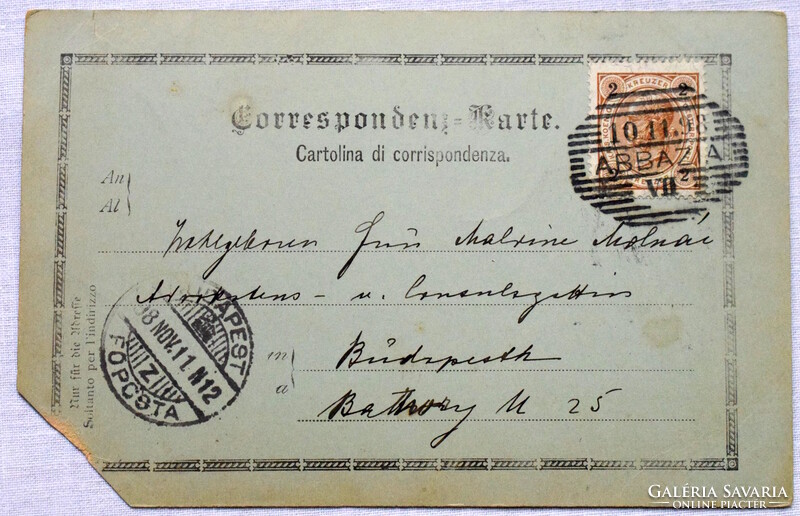 Correspondenz-Karte.
Cartolina di corrispondenza.
2 KREUZER 2
10.11.98
ABBAZIA
VII
An
Al
Frau Malvine Molnár
Advokatens- u. Consulsgattin
in
a
Budapesth
Bathory U 25
Nur für die Adresse
Soltanto per l'indirizzo
BUDAPEST
98 NOV. 11. N12
Z
FŐPOSTA
GALÉRIA SAVARIA
ONLINE PIACTÉR